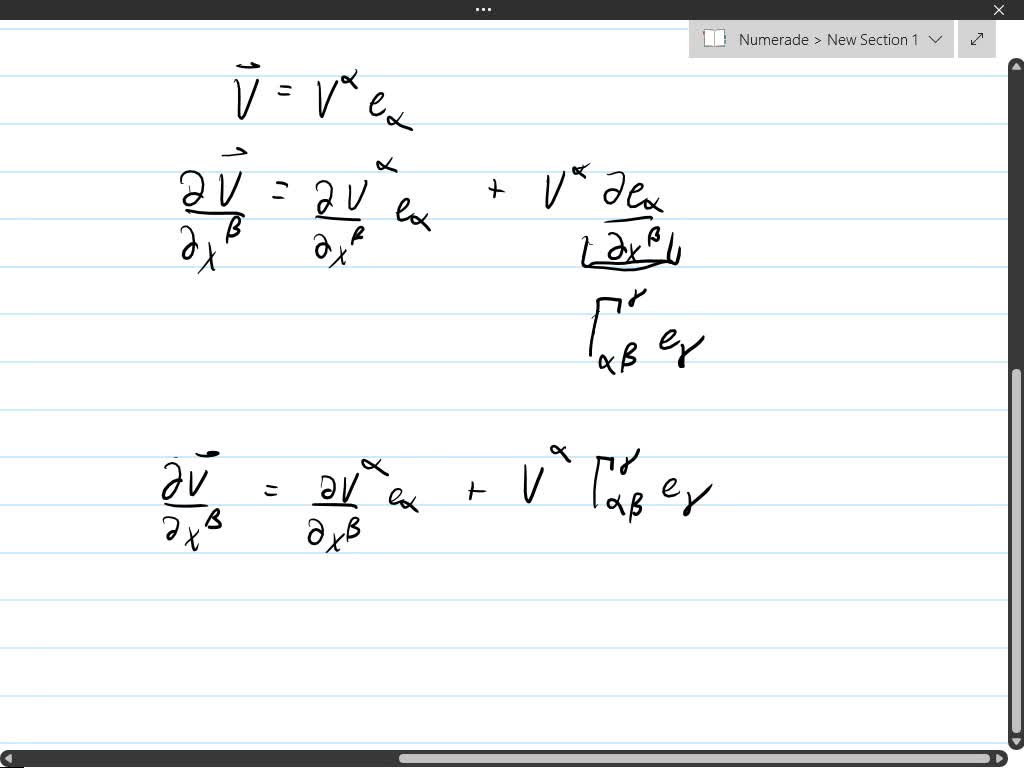 Numerade > New Section 1
V⃗ = V^α e_α
∂V⃗/∂x^β = ∂V^α/∂x^β e_α + V^α ∂e_α/∂x^β
Γ^γ_αβ e_γ
∂V⃗/∂x^β = ∂V^α/∂x^β e_α + V^α Γ^γ_αβ e_γ